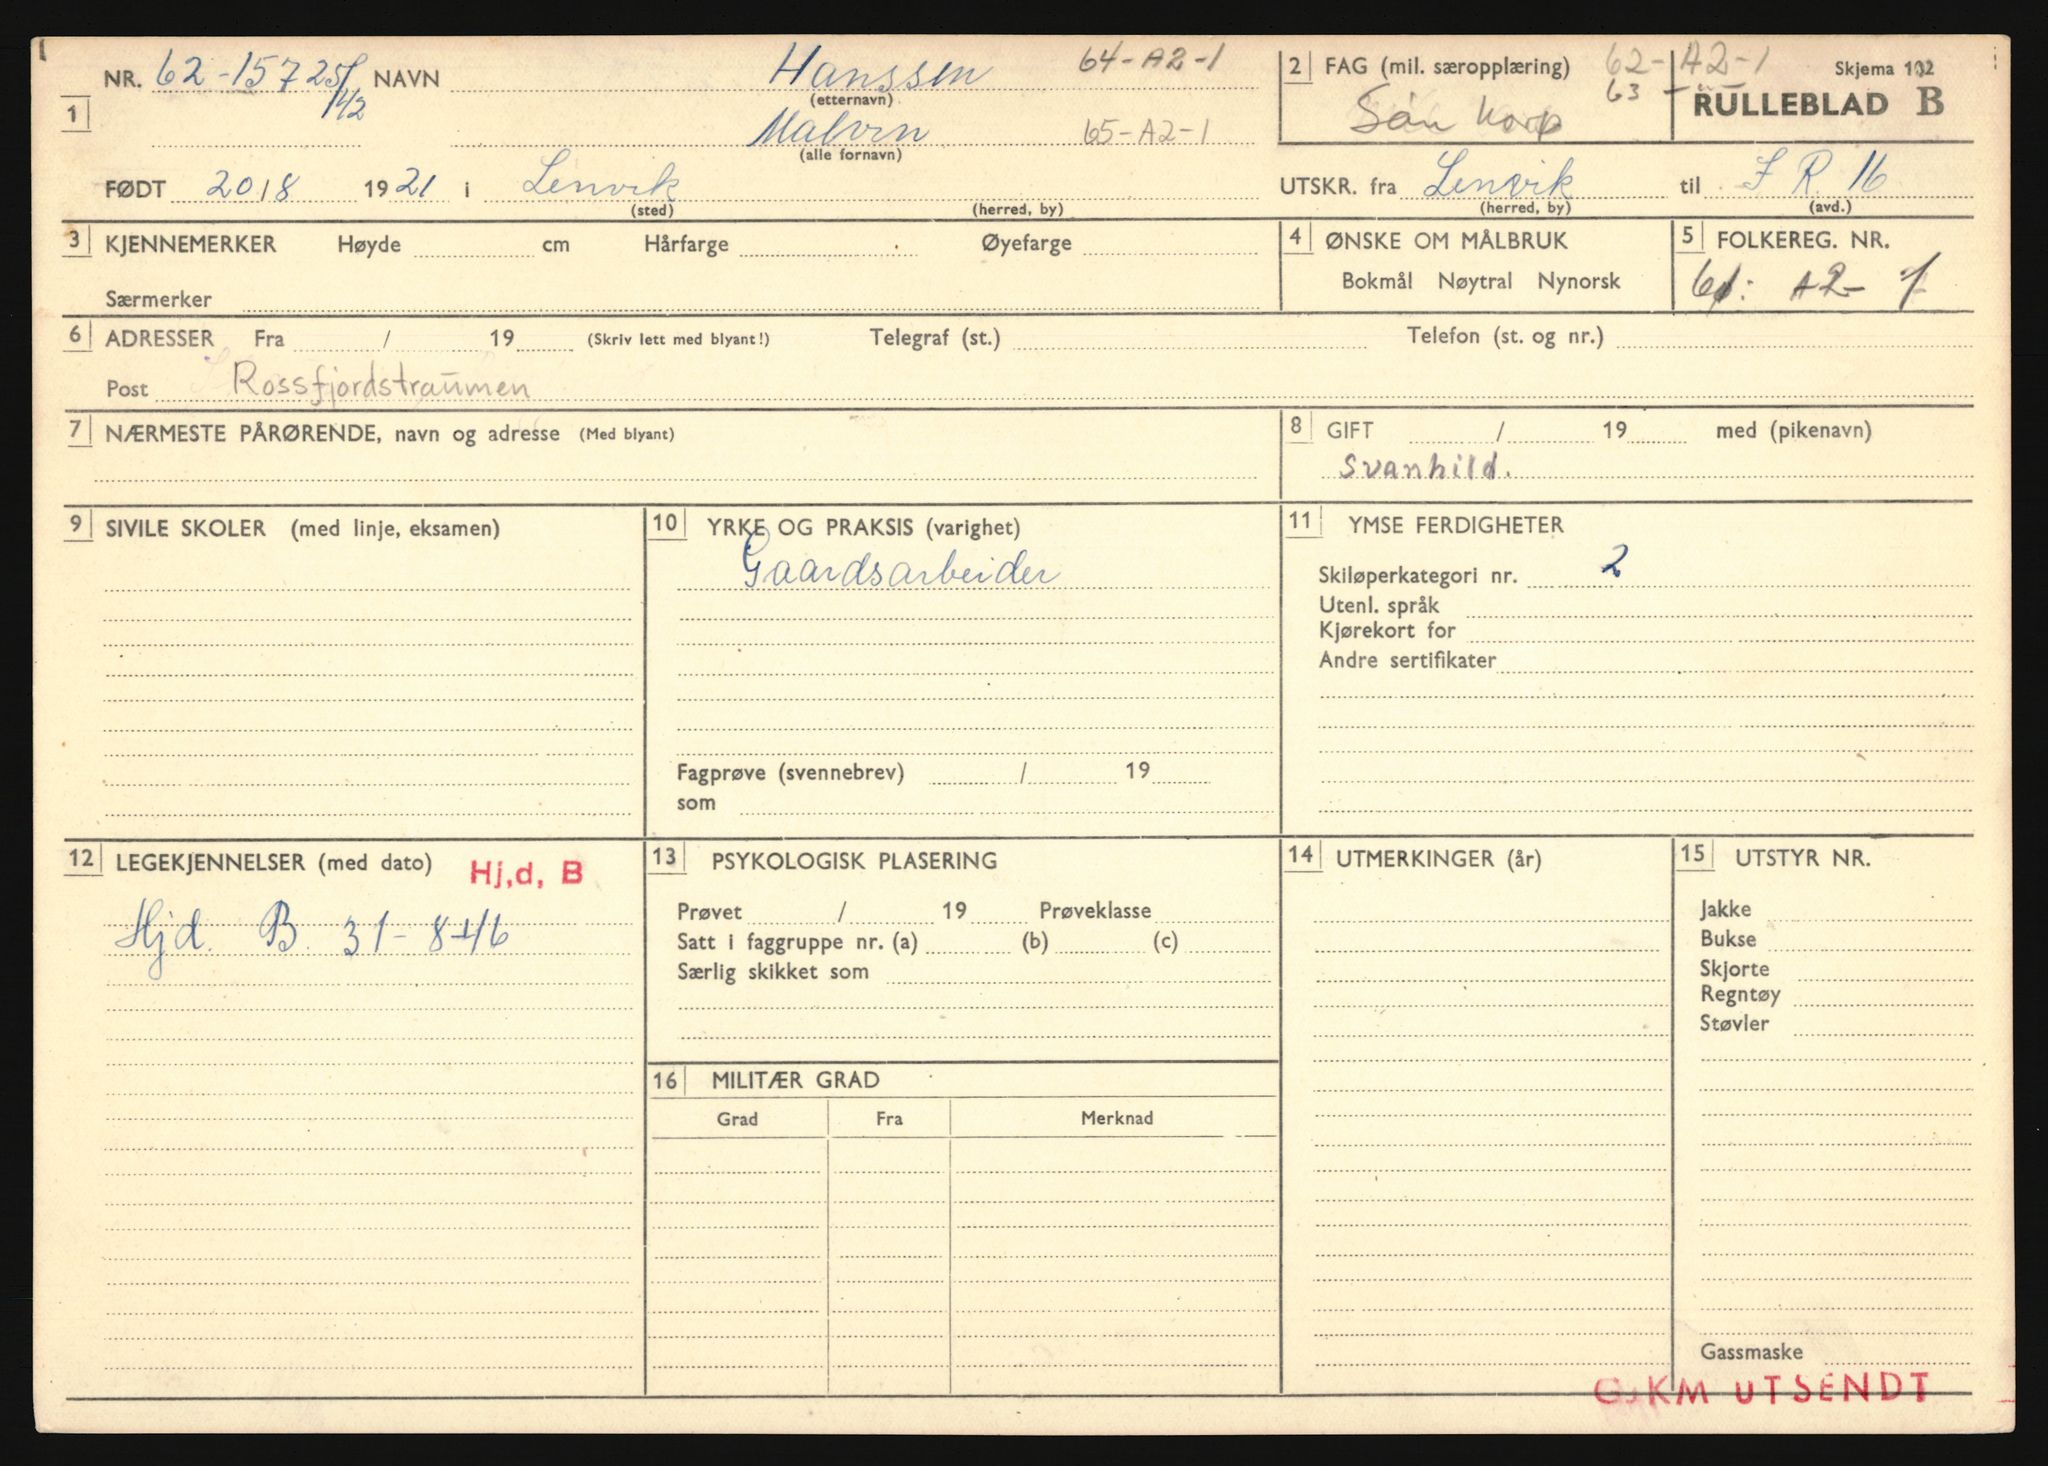 NR. 62-15725/42 NAVN Hanssen 64-A2-1
(etternavn)
1 Malvin 65-A2-1
(alle fornavn)
FØDT 20/8 1921 i Lenvik
(sted) (herred, by)
2 FAG (mil. særopplæring) 62-A2-1 Skjema 102
63 - " - RULLEBLAD B
San korp
UTSKR. fra Lenvik til I R. 16
(herred, by) (avd.)
3 KJENNEMERKER Høyde cm Hårfarge Øyefarge
Særmerker
4 ØNSKE OM MÅLBRUK
Bokmål Nøytral Nynorsk
5 FOLKEREG. NR.
61: A2- 1
6 ADRESSER Fra / 19 (Skriv lett med blyant!) Telegraf (st.) Telefon (st. og nr.)
Post Rossfjordstraumen
7 NÆRMESTE PÅRØRENDE, navn og adresse (Med blyant)
8 GIFT / 19 med (pikenavn)
Svanhild.
9 SIVILE SKOLER (med linje, eksamen)
10 YRKE OG PRAKSIS (varighet)
Gaardsarbeider
Fagprøve (svennebrev) / 19
som
11 YMSE FERDIGHETER
Skiløperkategori nr. 2
Utenl. språk
Kjørekort for
Andre sertifikater
12 LEGEKJENNELSER (med dato) Hj,d, B
Hjd. B. 31-8-46
13 PSYKOLOGISK PLASERING
Prøvet / 19 Prøveklasse
Satt i faggruppe nr. (a) (b) (c)
Særlig skikket som
14 UTMERKINGER (år)
15 UTSTYR NR.
Jakke
Bukse
Skjorte
Regntøy
Støvler
Gassmaske
16 MILITÆR GRAD
Grad Fra Merknad
G.KM UTSENDT